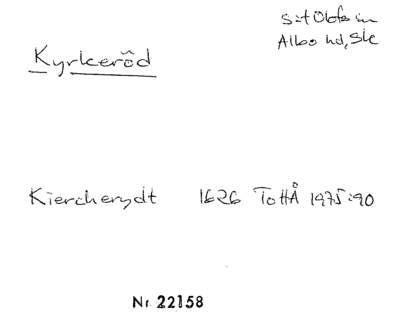 S:t Olofs sn
Albo hd, Sk
Kyrkeröd
Kiercherydt 1626 ToHÅ 1975:90
Nr 22158